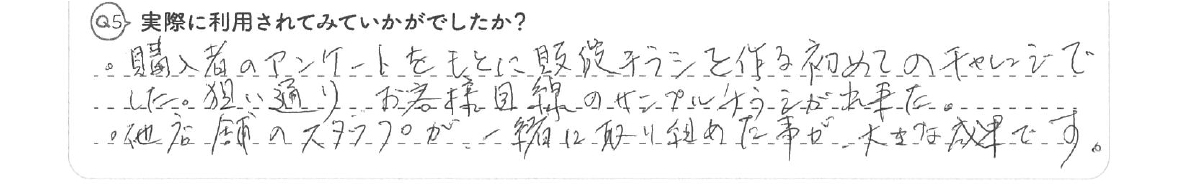 Q5 実際に利用されてみていかがでしたか？
。購入者のアンケートをもとに販促チラシを作る初めてのチャレンジで
した。狙い通り お客様目線のサンプルチラシが出来た。
。他店舗のスタッフが、一緒に取り組めた事が、大きな成果です。